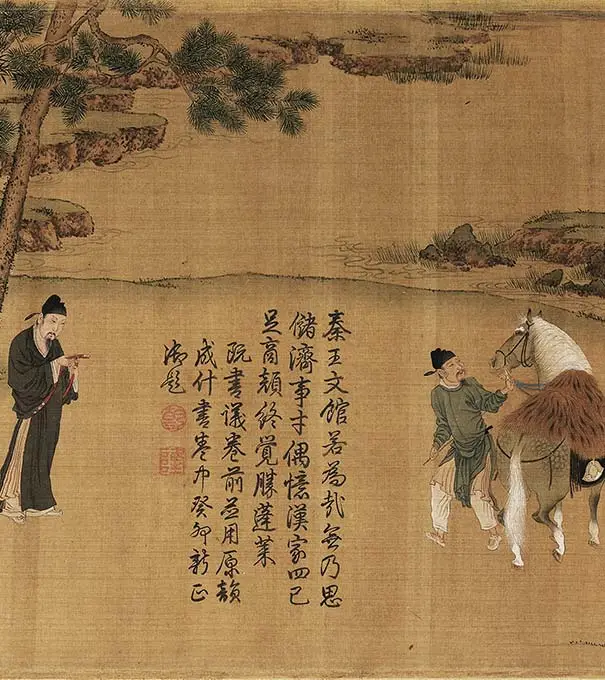 秦王文館若為哉無乃思
儲濟事才偶憶漢家四已
足商顏終覺勝蓬萊
既書議卷前並用原韻
成什書卷中癸卯新正
御題
乾
隆